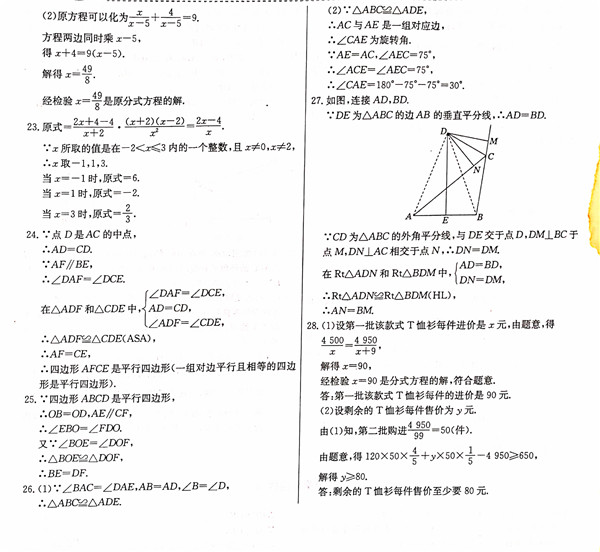 (2)原方程可以化为x/(x-5)+4/(x-5)=9.
方程两边同时乘 x-5,
得 x+4=9(x-5).
解得 x=49/8.
经检验 x=49/8是原分式方程的解.
23. 原式=(2x+4-4)/(x+2)·(x+2)(x-2)/x²=(2x-4)/x.
∵x 所取的值是在-2<x≤3 内的一个整数,且 x≠0,x≠2,
∴x 取-1,1,3.
当 x=-1 时,原式=6.
当 x=1 时,原式=-2.
当 x=3 时,原式=2/3.
24. ∵点 D 是 AC 的中点,
∴AD=CD.
∵AF∥BE,
∴∠DAF=∠DCE.
在△ADF 和△CDE 中,{∠DAF=∠DCE,
AD=CD,
∠ADF=∠CDE,
∴△ADF≌△CDE(ASA),
∴AF=CE,
∴四边形 AFCE 是平行四边形(一组对边平行且相等的四边
形是平行四边形).
25. ∵四边形 ABCD 是平行四边形,
∴OB=OD,AE∥CF,
∴∠EBO=∠FDO.
又∵∠BOE=∠DOF,
∴△BOE≌△DOF,
∴BE=DF.
26. (1)∵∠BAC=∠DAE,AB=AD,∠B=∠D,
∴△ABC≌△ADE.
(2)∵△ABC≌△ADE,
∴AC 与 AE 是一组对应边,
∴∠CAE 为旋转角.
∵AE=AC,∠AEC=75°,
∴∠ACE=∠AEC=75°,
∴∠CAE=180°-75°-75°=30°.
27. 如图,连接 AD,BD.
∵DE 为△ABC 的边 AB 的垂直平分线,∴AD=BD.
D
M
C
N
A
E
B
∵CD 为△ABC 的外角平分线,与 DE 交于点 D,DM⊥BC 于
点 M,DN⊥AC 相交于点 N,∴DN=DM.
在 Rt△ADN 和 Rt△BDM 中,{AD=BD,
DN=DM,
∴Rt△ADN≌Rt△BDM(HL),
∴AN=BM.
28. (1)设第一批该款式 T 恤衫每件进价是 x 元,由题意,得
4 500/x=4 950/(x+9),
解得 x=90,
经检验 x=90 是分式方程的解,符合题意.
答:第一批该款式 T 恤衫每件的进价是 90 元.
(2)设剩余的 T 恤衫每件售价为 y 元.
由(1)知,第二批购进4 950/99=50(件).
由题意,得 120×50×4/5+y×50×1/5-4 950≥650,
解得 y≥80.
答:剩余的 T 恤衫每件售价至少要 80 元.